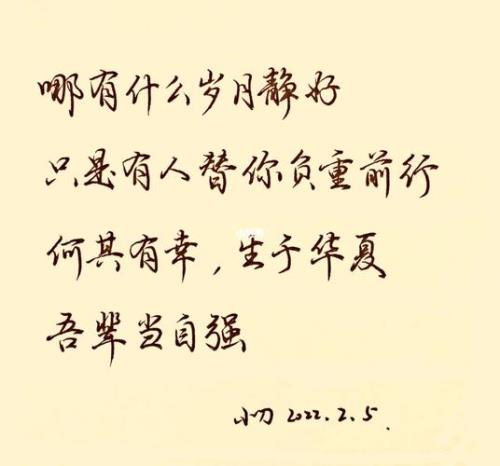 哪有什么岁月静好
只是有人替你负重前行
何其有幸，生于华夏
吾辈当自强
小刀 2022.2.5.